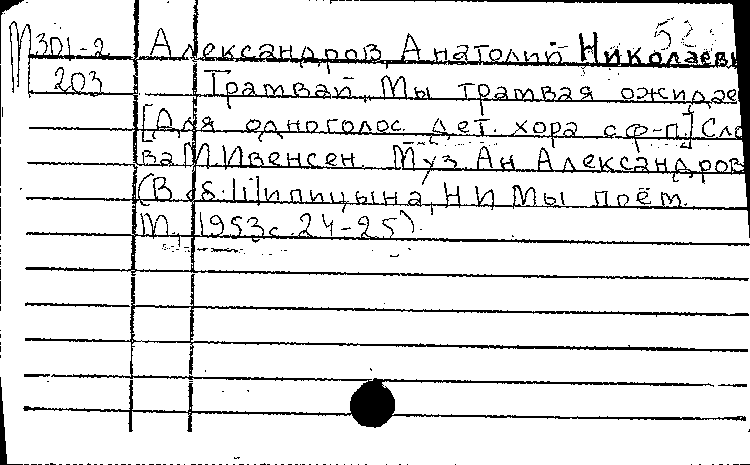 М301-2 Александров, Анатолий Николаеви
203 Трамвай. Мы трамвая ожидае
[Для одноголос. дет. хора с ф-п.] Сло
ва М. Ивенсен. Муз. Ан. Александров
(В сб. Шипицына, Н И Мы поём.
М., 1953 с. 24-25).